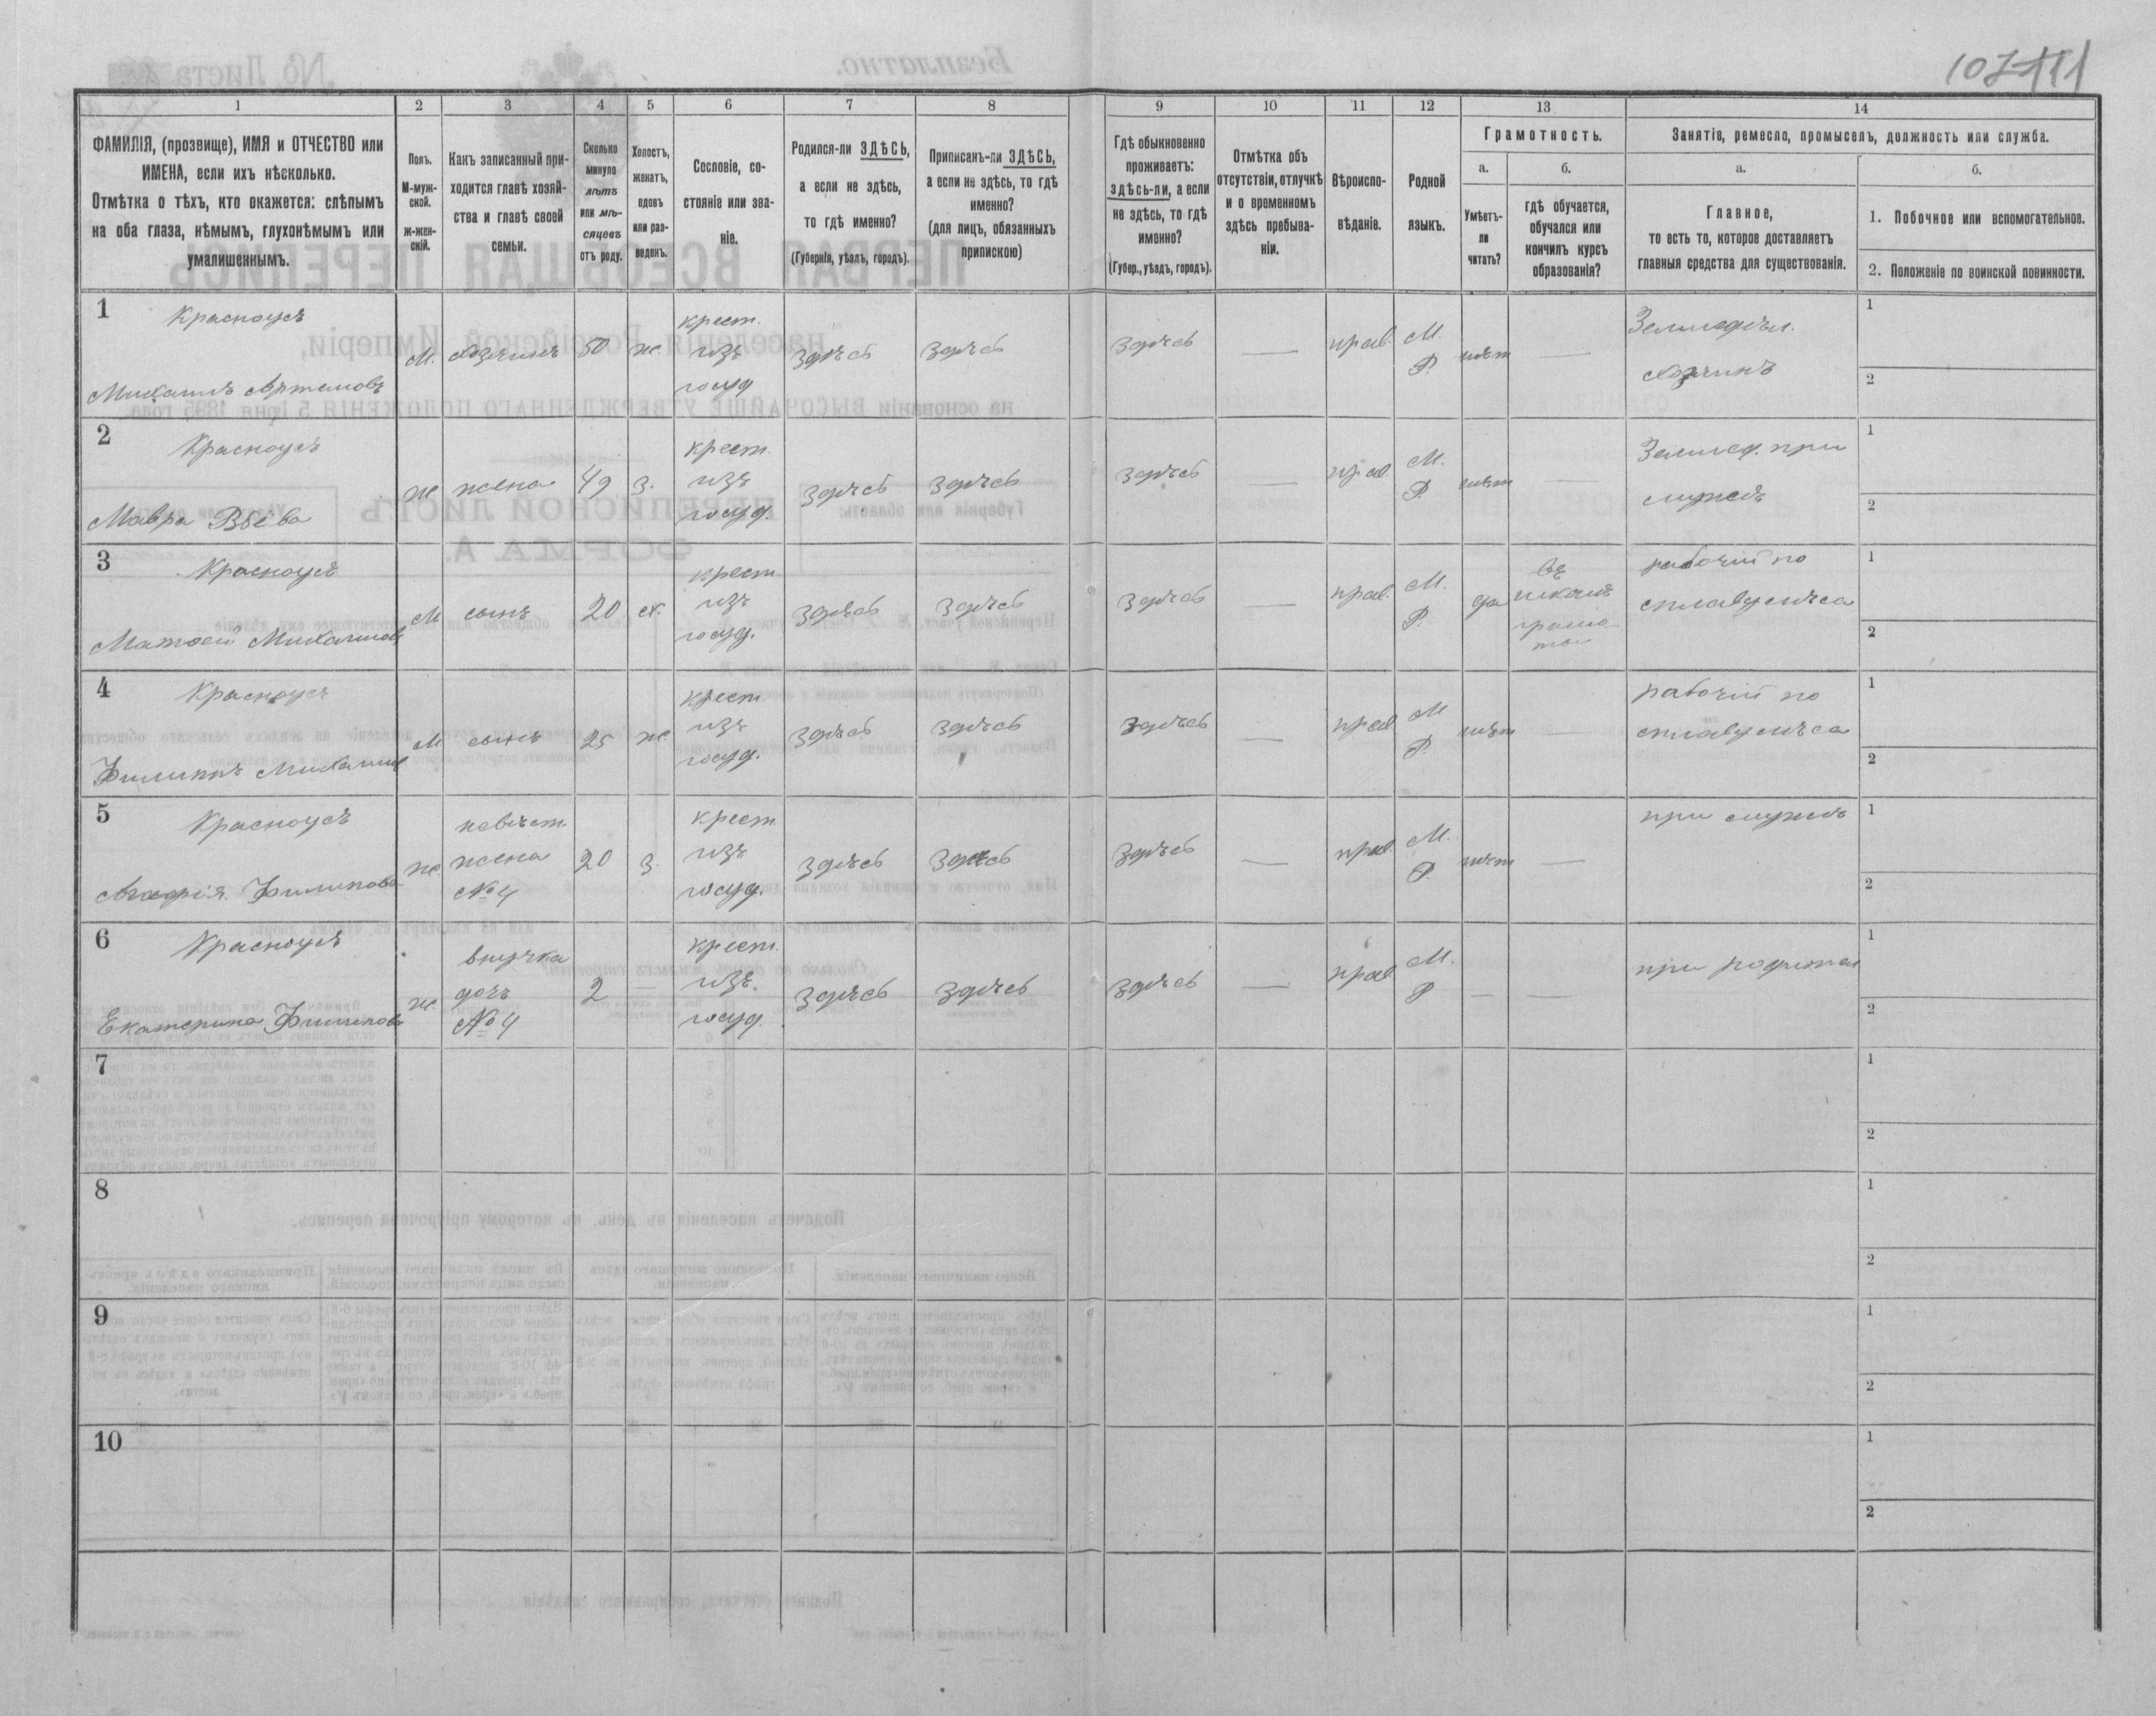 107 111
1
2
3
4
5
6
7
8
9
10
11
12
13
14
ФАМИЛІЯ, (прозвище), ИМЯ и ОТЧЕСТВО или
ИМЕНА, если ихъ нѣсколько.
Отмѣтка о тѣхъ, кто окажется: слѣпымъ
на оба глаза, нѣмымъ, глухонѣмымъ или
умалишеннымъ.
Полъ.
М-муж-
ской.
ж-жен-
скій.
Какъ записанный при-
ходится главѣ хозяй-
ства и главѣ своей
семьи.
Сколько
минуло
лѣтъ
или мѣ-
сяцевъ
отъ роду.
Холостъ,
женатъ,
вдовъ
или раз-
веденъ.
Сословіе, со-
стояніе или зва-
ніе.
Родился-ли ЗДѢСЬ,
а если не здѣсь,
то гдѣ именно?
(Губернія, уѣздъ, городъ).
Приписанъ-ли ЗДѢСЬ,
а если не здѣсь, то гдѣ
именно?
(для лицъ, обязанныхъ
припискою)
Гдѣ обыкновенно
проживаетъ:
здѣсь-ли, а если
не здѣсь, то гдѣ
именно?
(Губер., уѣздъ, городъ).
Отмѣтка объ
отсутствіи, отлучкѣ
и о временномъ
здѣсь пребыва-
ніи.
Вѣроиспо-
вѣданіе.
Родной
языкъ.
Грамотность.
а.
Умѣетъ-
ли
читать?
б.
гдѣ обучается,
обучался или
кончилъ курсъ
образованія?
Занятіе, ремесло, промыселъ, должность или служба.
а.
Главное,
то есть то, которое доставляетъ
главныя средства для существованія.
б.
1. Побочное или вспомогательное.
2. Положеніе по воинской повинности.
1
Красноусъ
Михаилъ Артемовъ
М. хозяинъ 50 ж
крест.
изъ
госуд
здѣсь здѣсь здѣсь — прав. М.
Р.
нѣт —
Земледѣл.
хозяинъ
1
2
2
Красноусъ
Мавра
ж жена 49 з.
крест.
изъ
госуд.
здѣсь здѣсь здѣсь — прав. М.
Р
нѣт —
Землед. при
мужѣ
1
2
3
Красноусъ
Матвей Михаилов
М сынъ 20 х.
крест
изъ
госуд.
здѣсь здѣсь здѣсь — прав. М.
Р.
да
въ
школѣ
грамо
ты
рабочій по
сплаву лѣса
1
2
4
Красноусъ
Филиппъ Михаилов
М сынъ 25 ж
крест.
изъ
госуд.
здѣсь здѣсь здѣсь — прав М
Р.
нѣт —
рабочій по
сплаву лѣса
1
2
5
Красноусъ
Филипова
ж
невѣст
жена
№ 4
20 з.
крест
изъ
госуд.
здѣсь здѣсь здѣсь — прав М.
Р.
нѣт —
при мужѣ
1
2
6
Красноусъ
Екатерина Филипова
ж.
внучка
дочь
№ 4
2 —
крест.
изъ
госуд.
здѣсь здѣсь здѣсь — прав М.
Р
— —
при родител
1
2
7
1
2
8
1
2
9
1
2
10
1
2